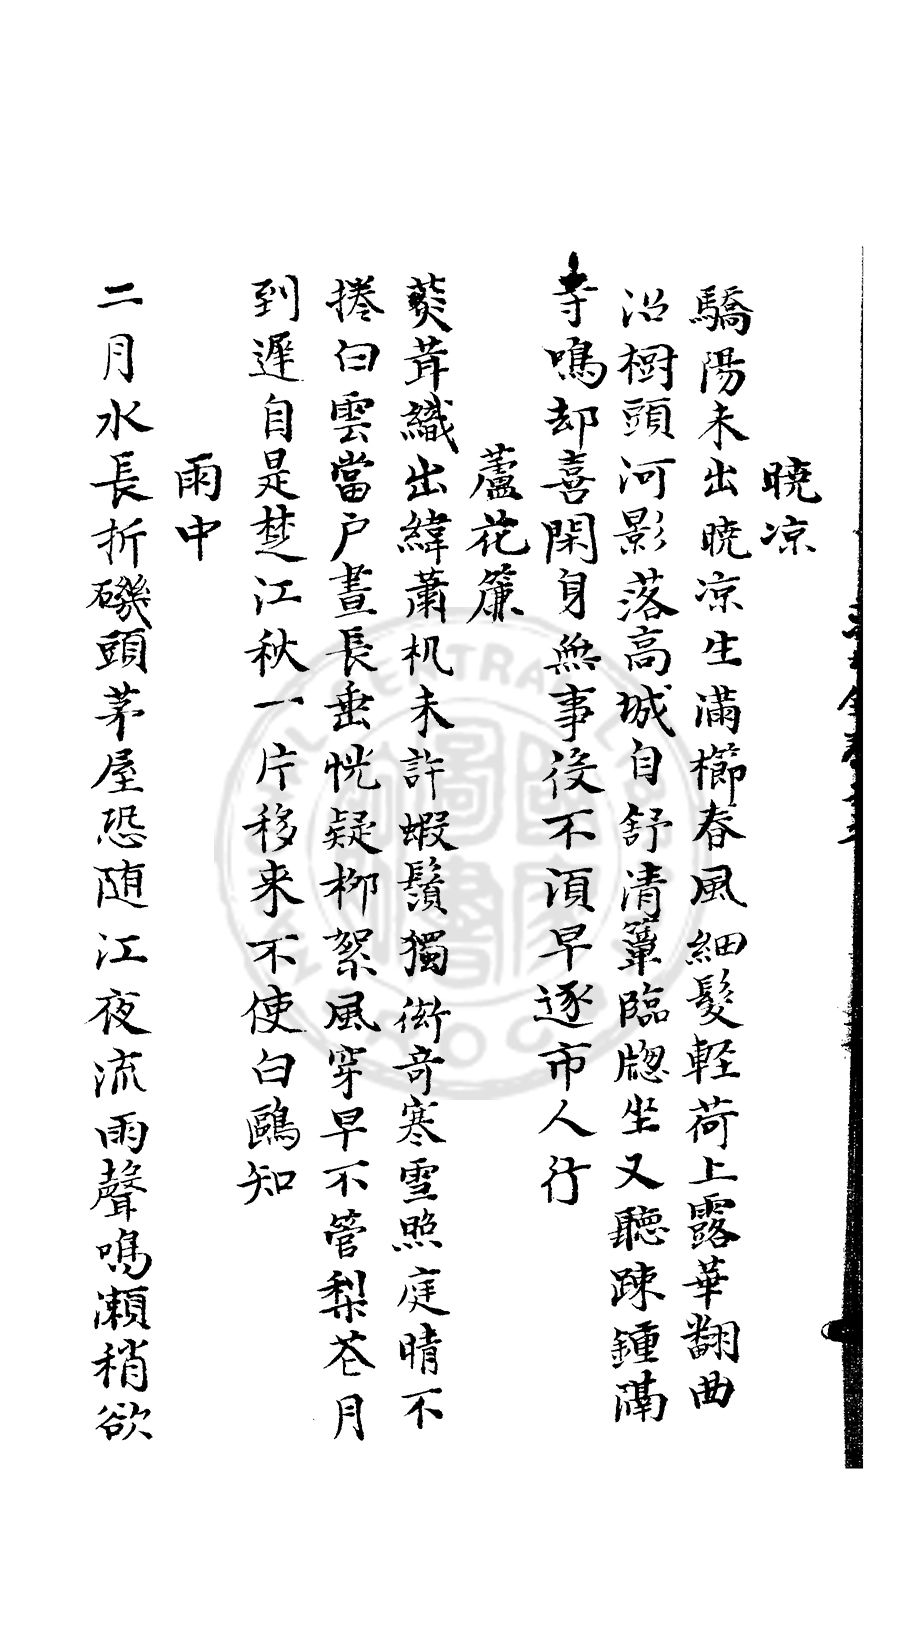 暁凉
驕陽未出暁凉生滿櫛春風細髮軽荷上露華翻曲
沼樹頭河影落高城自舒清簟臨牎坐又聽踈鍾隔
寺鳴却喜閑身無事役不湏早逐市人行
蘆花簾
葼茸織出緯蕭机未許蝦鬚獨衒竒寒雪照庭晴不
捲白雲當户晝長垂恍疑柳絮風穿早不管梨花月
到遲自是楚江秋一片移来不使白鷗知
雨中
二月水長折磯頭茅屋恐随江夜流雨聲鳴瀬稍欲